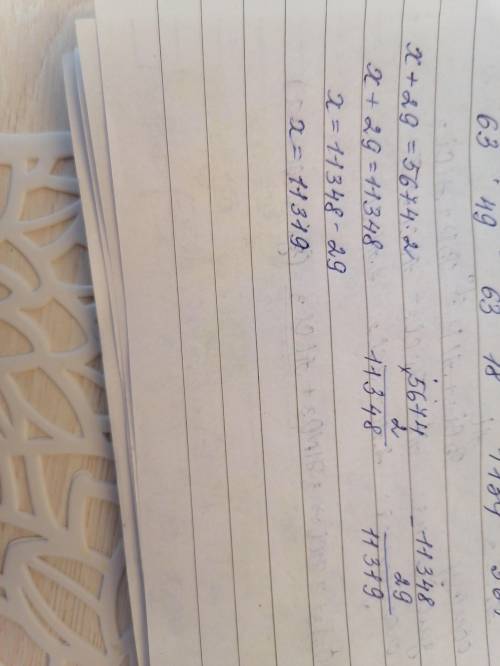 63 49 63 18 1134
x + 29 = 5674 · 2
x + 29 = 11348
x = 11348 - 29
x = 11319
× 5674
2
11348
- 11348
29
11319